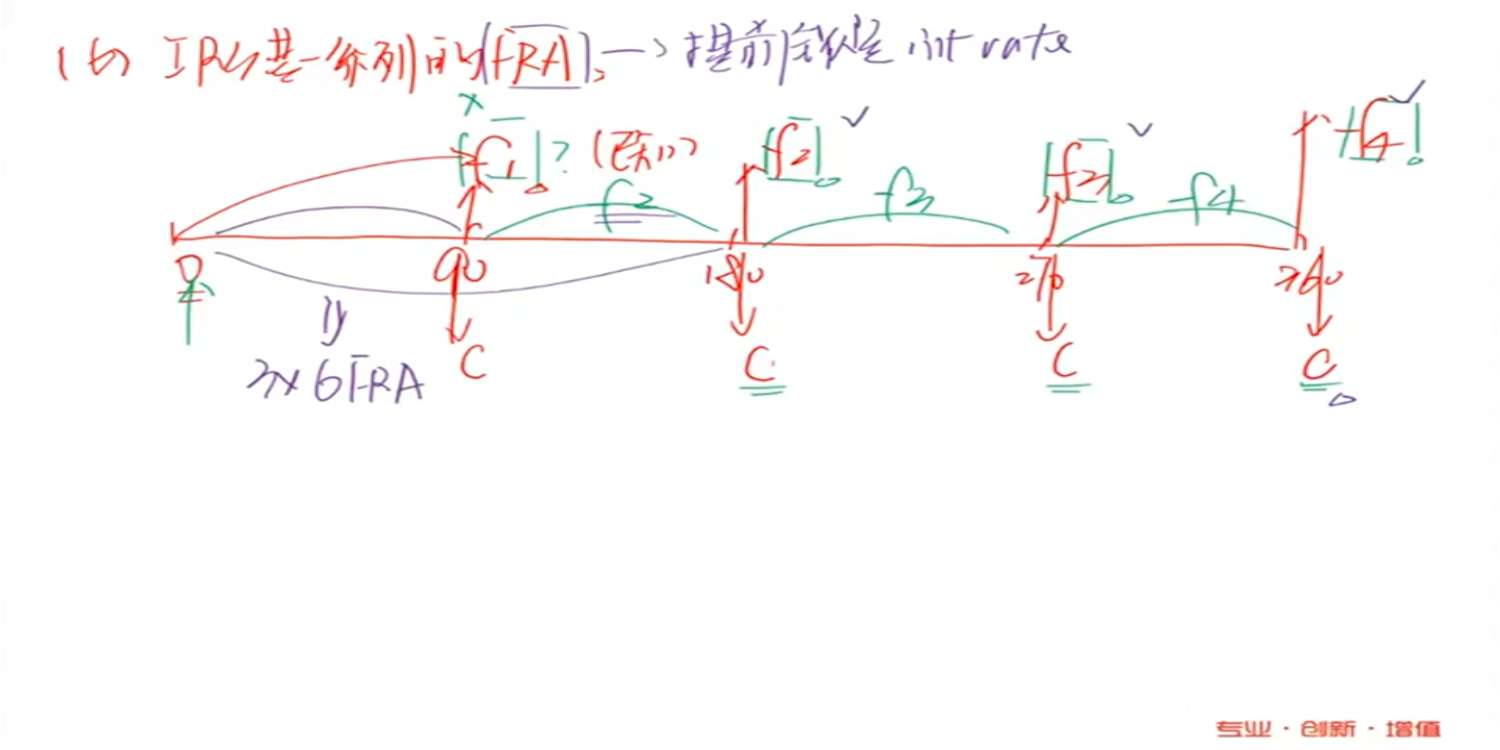 (6) IRS是一系列的(FRA), → 提前锁定 int rate
f1 ? (已知) f2 f3 f4
f2 f3 f4
0 90 180 270 360
3×6 FRA C C C C
专业 · 创新 · 增值